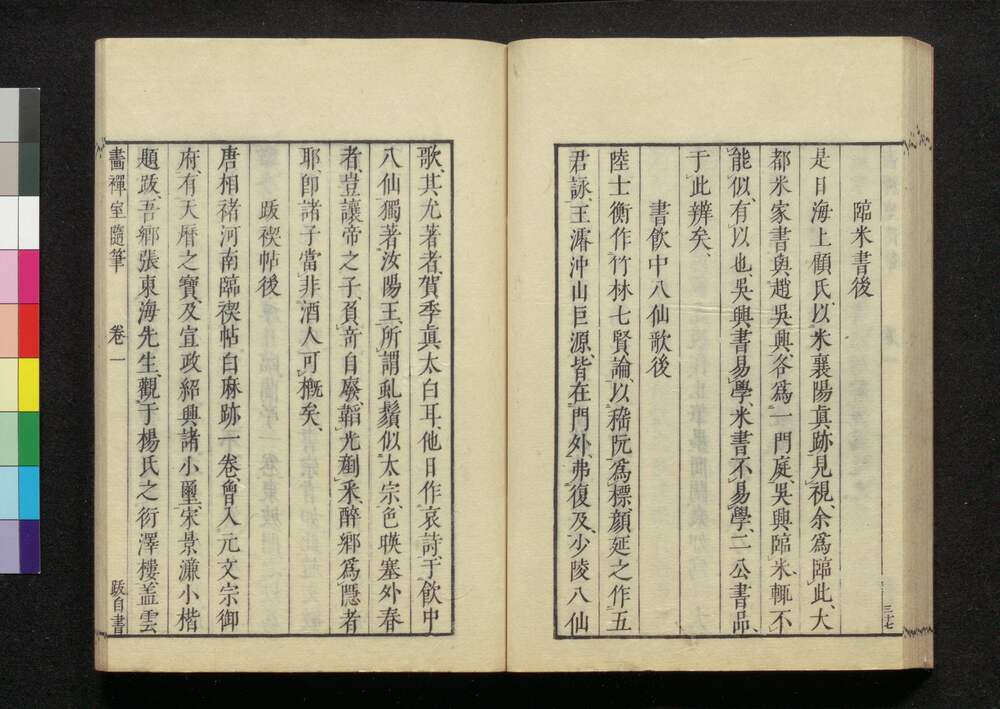 臨米書後
是日海上顧氏以米襄陽眞跡見視余爲臨此大
都米家書與趙吳興各爲一門庭吳興臨米輒不
能似有以也吳興書易學米書不易學二公書品
于此辨矣
書飲中八仙歌後
陸士衡作竹林七賢論以嵇阮爲標顏延之作五
君詠王濬沖山巨源皆在門外弗復及少陵八仙
三十七
歌其尤著者賀季眞太白耳他日作哀詩于飲中
八仙獨著汝陽王所謂虬鬚似太宗色暎塞外春
者豈讓帝之子負竒自廢韜光剷采醉鄉爲隱者
耶卽諸子當非酒人可概矣
跋禊帖後
唐相褚河南臨禊帖白麻跡一卷曾入元文宗御
府有天曆之寶及宣政紹興諸小璽宋景濂小楷
題跋吾鄉張東海先生觀于楊氏之衍澤樓盖雲
畵禪室隨筆 卷一 跋自書